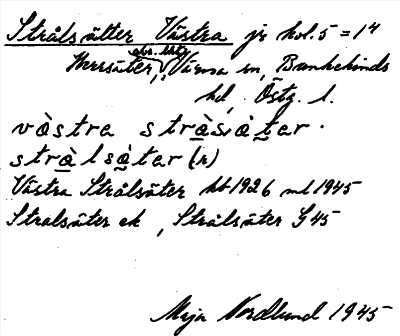 Strålsätter Västra jr kol. 5 = 1⁴
Herrsäter, Värna sn, Bankekinds
hd, Östg. l.
vàstra stràsàtar.
stràlsàtar (r)
Västra Strålsäter kb 1926 ml 1945
Stralsäter ek, Strålsäter G 45
Maja Nordlund 1945